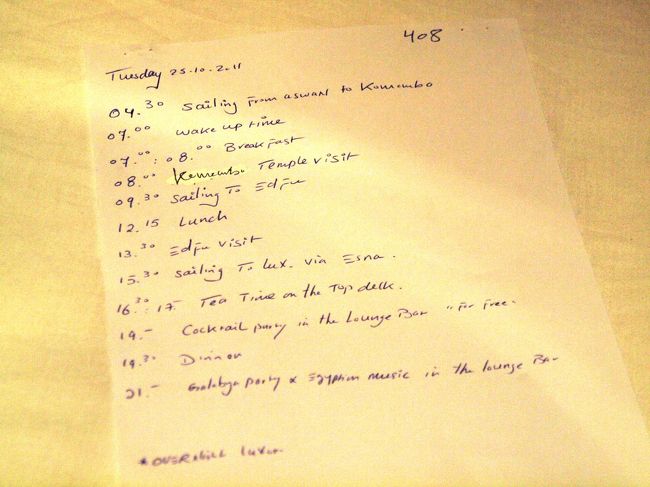 408
Tuesday 25.10.2011
04.30 Sailing From aswan to Komombo
07.00 wake up time
07.00 : 08.00 Breakfast
08.00 Komombo Temple visit
09.30 sailing To Edfu
12.15 Lunch
13.30 Edfu visit
15.30 sailing To Lux. via Esna.
16.30 : 17.- Tea Time on the Top deck.
19.- Cocktail party in the Lounge Bar "For Free.
19.30 Dinner
21.- Galabya party & Egyptian music in the lounge Bar
*OVERNIGHT Luxor